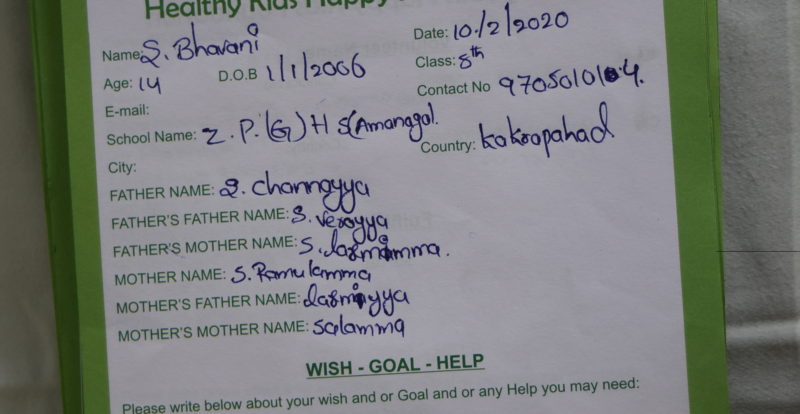 Healthy Kids Happy
Name: S. Bhavani Date: 10/2/2020
Age: 14 D.O.B 1/1/2006 Class: 8th
E-mail: Contact No
School Name: Z.P.(G) H S(Amanagal.
City: Country: kakroopahad
FATHER NAME: S. channayya
FATHER'S FATHER NAME: S. verayya
FATHER'S MOTHER NAME: S.
MOTHER NAME: S. Ramulamma
MOTHER'S FATHER NAME:
MOTHER'S MOTHER NAME: salamma
WISH - GOAL - HELP
Please write below about your wish and or Goal and or any Help you may need: